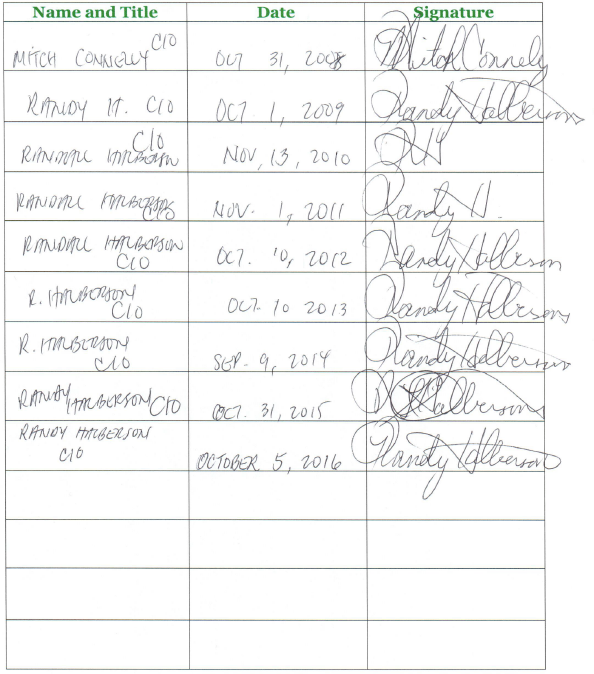 Name and Title Date Signature
MITCH CONNELLY CIO OCT 31, 2008 Mitch Connelly
RANDY H. CIO OCT. 1, 2009 Randy Halberson
RANDALL HALBERSON CIO NOV, 13, 2010 RH
RANDALL HALBERSON CIO NOV. 1, 2011 Randy H.
RANDALL HALBERSON CIO OCT. 10, 2012 Randy Halberson
R. HALBERSON CIO OCT. 10 2013 Randy Halberson
R. HALBERSON CIO SEP. 9, 2014 Randy Halberson
RANDY HALBERSON CIO OCT. 31, 2015 R Halberson
RANDY HALBERSON CIO OCTOBER 5, 2016 Randy Halberson